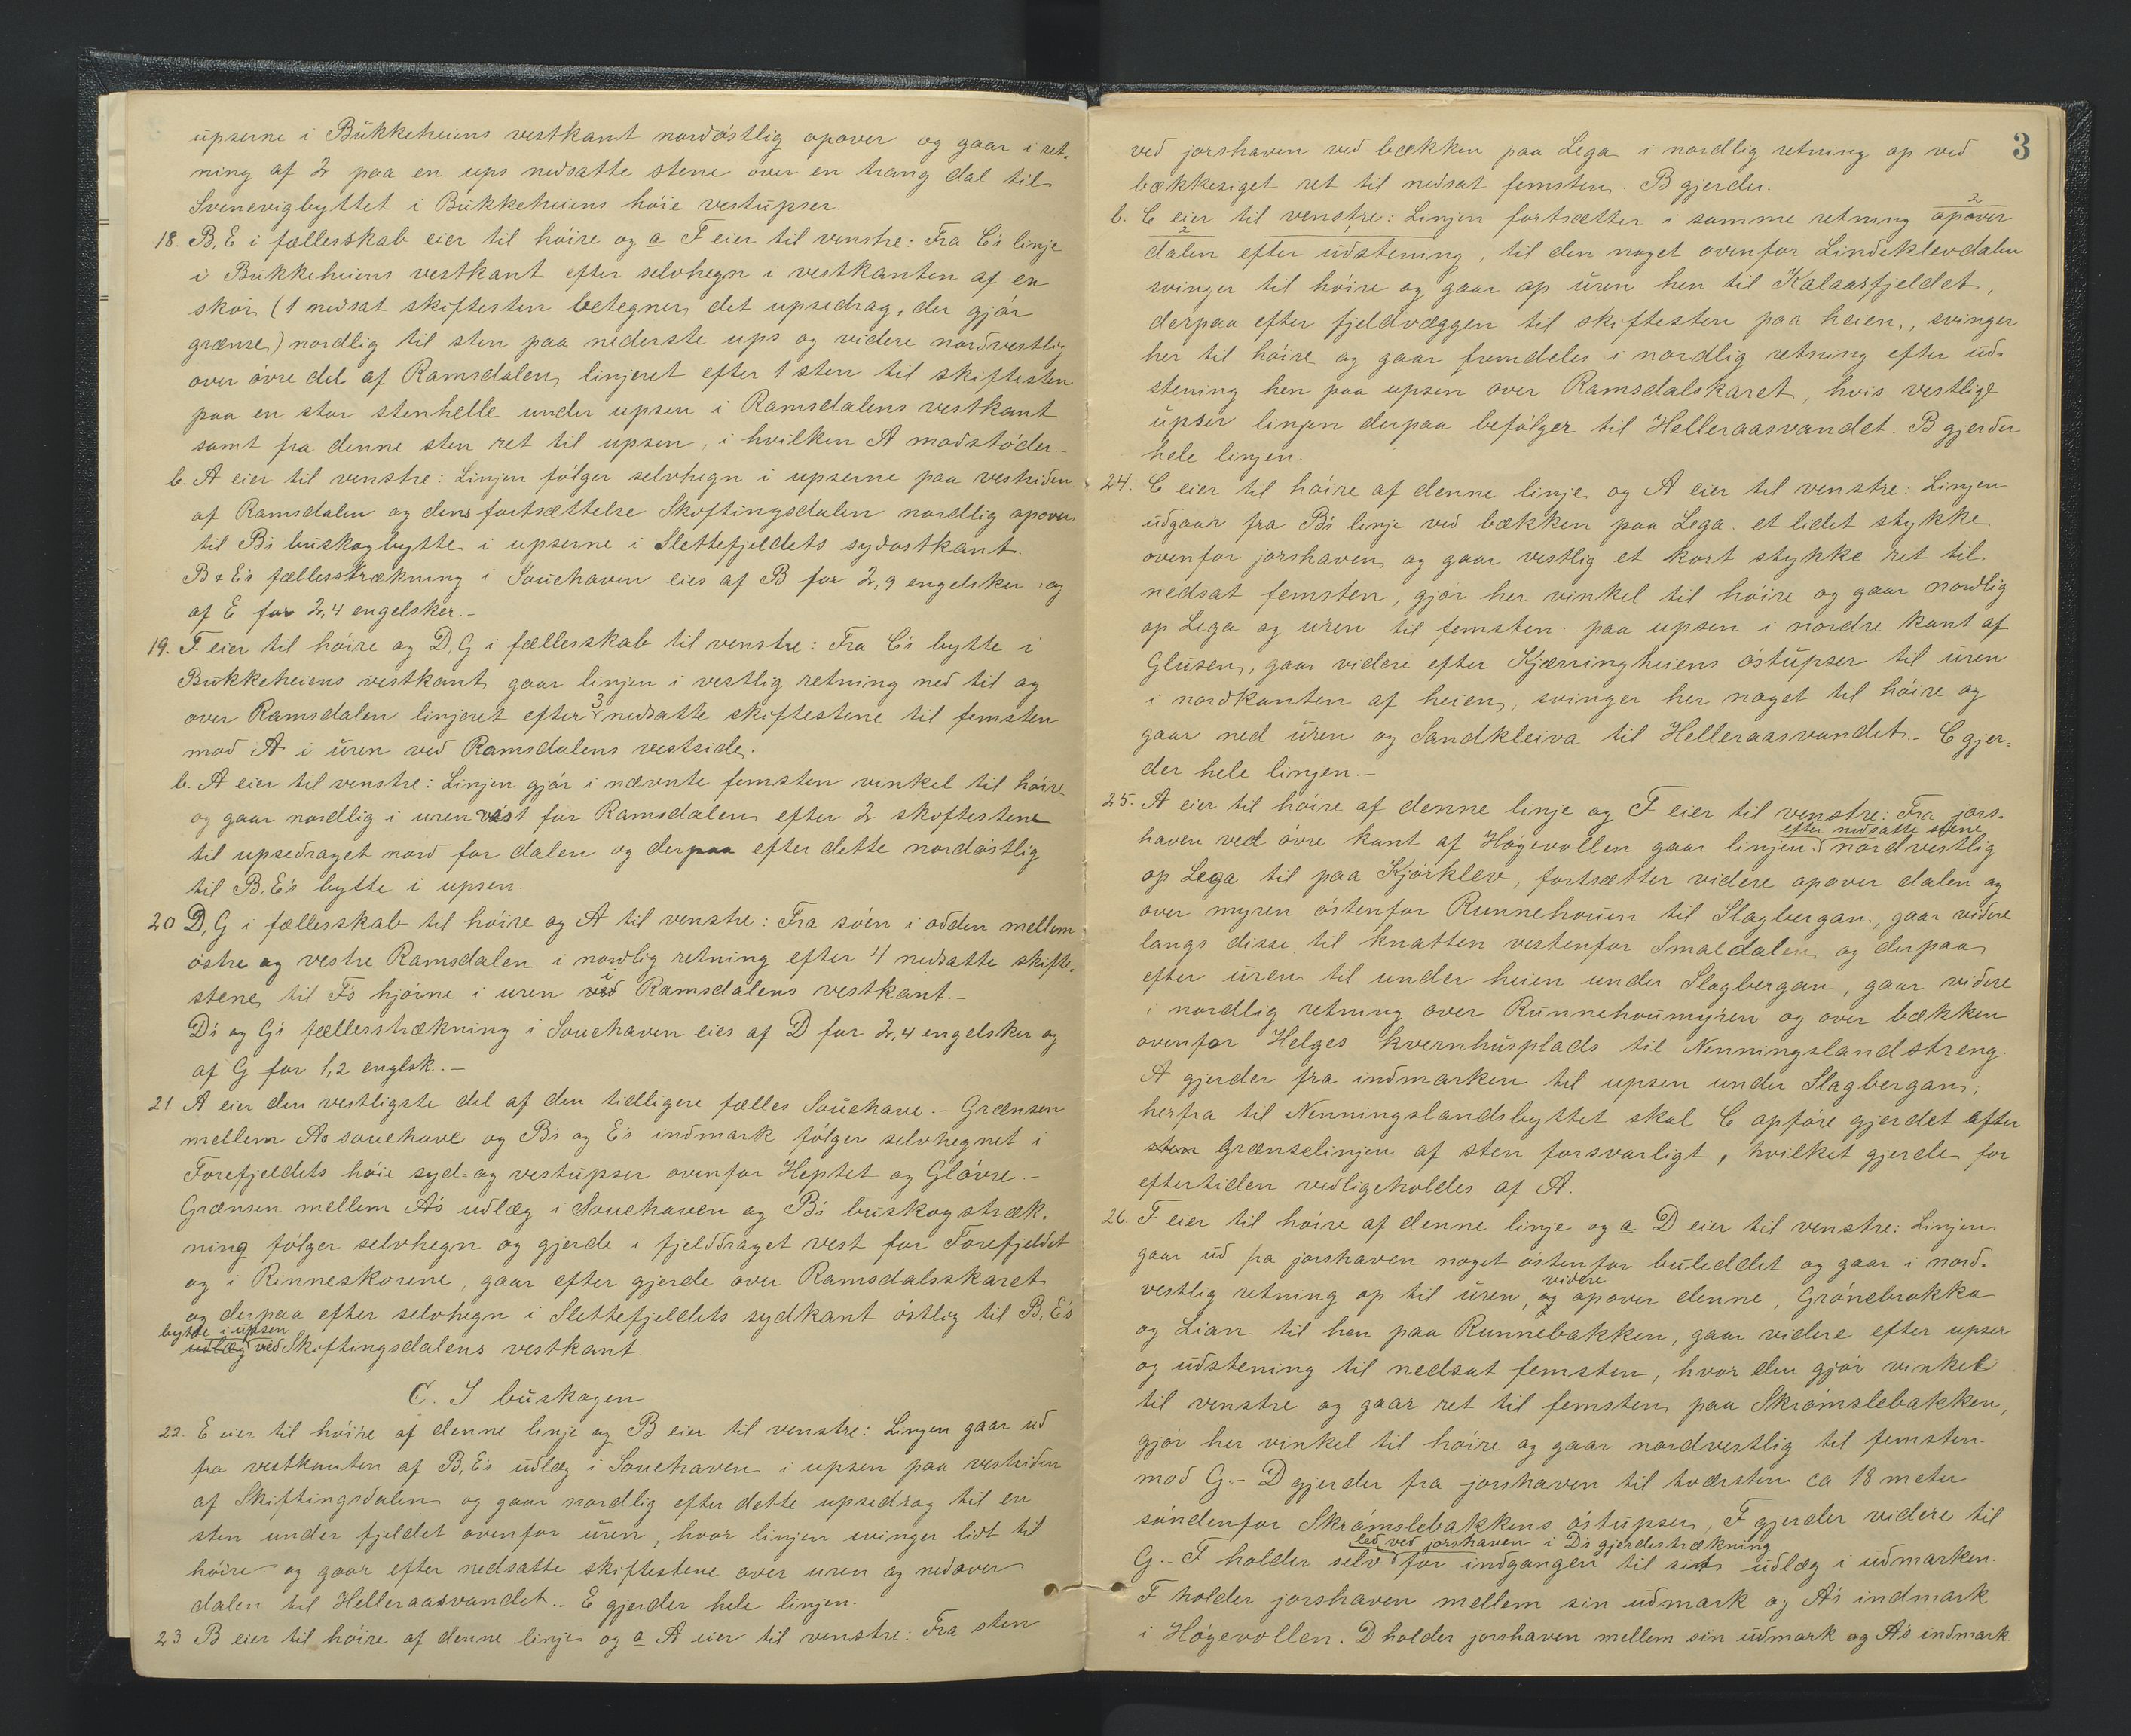 upserne i Bukkeheiens vestkant nordøstlig opover og gaar i ret-
ning af 2 paa en ups nedsatte stene over en trang dal til
Svenevigbyttet i Bukkeheiens høie vestupser.
18. B, E i fællesskab eier til høire og a F eier til venstre: Fra C's linje
i Bukkeheiens vestkant efter selvhegn i vestkanten af en
skor (1 nedsat skiftesten betegner det upsedrag, der gjør
grænse) nordlig til sten paa nederste ups og videre nordvestlig
over øvre del af Ramsdalen linjeret efter 1 sten til skiftesten
paa en stor stenhelle under upsen i Ramsdalens vestkant
samt fra denne sten ret til upsen, i hvilken A modstøder.-
b. A eier til venstre: Linjen følger selvhegn i upserne paa vestsiden
af Ramsdalen og dens fortsættelse Skiftingsdalen nordlig opover
til B's buskogbytte i upserne i Slettefjeldets sydostkant.
B & E's fællesstrækning i Souehaven eies af B for 2,9 engelsker og
af E for 2,4 engelsker.-
19. F eier til høire og D, G i fællesskab til venstre: Fra C's bytte i
Bukkeheiens vestkant gaar linjen i vestlig retning ned til og
over Ramsdalen linjeret efter 3 nedsatte skiftestene til femsten
mod A i uren ved Ramsdalens vestside.
b. A eier til venstre: Linjen gjør i nævnte femsten vinkel til høire
og gaar nordlig i uren vest for Ramsdalen efter 2 skiftestene
til upsedraget nord for dalen og derpaa efter dette nordøstlig
til B, E's bytte i upsen.
20 D, G i fællesskab til høire og A til venstre: Fra søen i odden mellem
østre og vestre Ramsdalen i nordlig retning efter 4 nedsatte skifte-
stene til F's hjørne i uren ved i Ramsdalens vestkant.-
D's og G's fællesstrækning i Souehaven eies af D for 2,4 engelsker og
af G for 1,2 englsk.-
21. A eier den vestligste del af den tidligere fælles Souehave.- Grænsen
mellem A's souehave og B's og E's indmark følger selvhegnet i
Forefjeldets høie syd- og vestupser ovenfor Heptet og Gløvre.-
Grænsen mellem A's udlæg i Souehaven og B's buskogstræk-
ning følger selvhegn og gjerde i fjelddraget vest for Forefjeldet
og i Rinneskorene, gaar efter gjerde over Ramsdalsskaret
og derpaa efter selvhegn i Slettefjeldets sydkant østlig til B, E's
bytte i upsen
udlæg ved Skiftingsdalens vestkant.
C. I buskogen
22. E eier til høire af denne linje og B eier til venstre: Linjen gaar ud
fra vestkanten af B, E's udlæg i Souehaven i upsen paa vestsiden
af Skiftingsdalen og gaar nordlig efter dette upsedrag til en
sten under fjeldet ovenfor uren, hvor linjen svinger lidt til
høire og gaar efter nedsatte skiftestene over uren og nedover
dalen til Helleraasvandet.- E gjerder hele linjen.
23 B eier til høire af denne linje og a A eier til venstre: Fra sten
3
ved jorshaven ved bækken paa Lega i nordlig retning op ved
bækkesiget ret til nedsat femsten. B gjerder.
b. C eier til venstre: Linjen fortsætter i samme retning opover 2
dalen efter udstening, til den noget ovenfor Lindeklevdalen
svinger til høire og gaar op uren hen til Kalaasfjeldet,
derpaa efter fjeldvæggen til skiftesten paa heien, svinger
her til høire og gaar fremdeles i nordlig retning efter ud-
stening hen paa upsen over Ramsdalskaret, hvis vestlige
upser linjen derpaa befølger til Helleraasvandet. B gjerder
hele linjen.
24. C eier til høire af denne linje og A eier til venstre: Linjen
udgaar fra B's linje ved bækken paa Lega et lidet stykke
ovenfor jorshaven og gaar vestlig et kort stykke ret til
nedsat femsten, gjør her vinkel til høire og gaar nordlig
op Lega og uren til femsten paa upsen i nordre kant af
Glusen, gaar videre efter Kjærringheiens østupser til uren
i nordkanten af heien, svinger her noget til høire og
gaar ned uren og Sandkleiva til Helleraasvandet.- C gjer-
der hele linjen.-
25. A eier til høire af denne linje og F eier til venstre: Fra jors-
efter nedsatte stene
haven ved øvre kant af Høgevollen gaar linjen nordvestlig
op Lega til paa Kjørklev, fortsætter videre opover dalen og
over myren østenfor Runnehouen til Slagbergan, gaar videre
langs disse til knatten vestenfor Smaldalen og derpaa
efter uren til under heien under Slagbergan, gaar videre
i nordlig retning over Runnehoumyren og over bækken
ovenfor Helges kvernhusplads til Nenningslandstreng.
A gjerder fra indmarken til upsen under Slagbergan;
herfra til Nenningslandsbyttet skal C opføre gjerdet efter
sten Grænselinjen af sten forsvarligt, hvilket gjerde for
eftertiden vedligeholdes af A.
26. F eier til høire af denne linje og a D eier til venstre: Linjen
gaar ud fra jorshaven noget østenfor buleddet og gaar i nord-
videre
vestlig retning op til uren, og opover denne, Grønebrokka
og Lian til hen paa Runnebakken, gaar videre efter upser
og udstening til nedsat femsten, hvor den gjør vinkel
til venstre og gaar ret til femsten paa Skrømslebakken,
gjør her vinkel til høire og gaar nordvestlig til femsten
mod G.- D gjerder fra jorshaven til tværsten ca 18 meter
søndenfor Skrømslebakkens østupser, F gjerder videre til
led ved jorshaven i D's gjerdestrækning
G.- F holder selv for indgangen til sit udlæg i udmarken.
F holder jorshaven mellem sin udmark og A's indmark
i Høgevollen. D holder jorshaven mellem sin udmark og A's indmark.